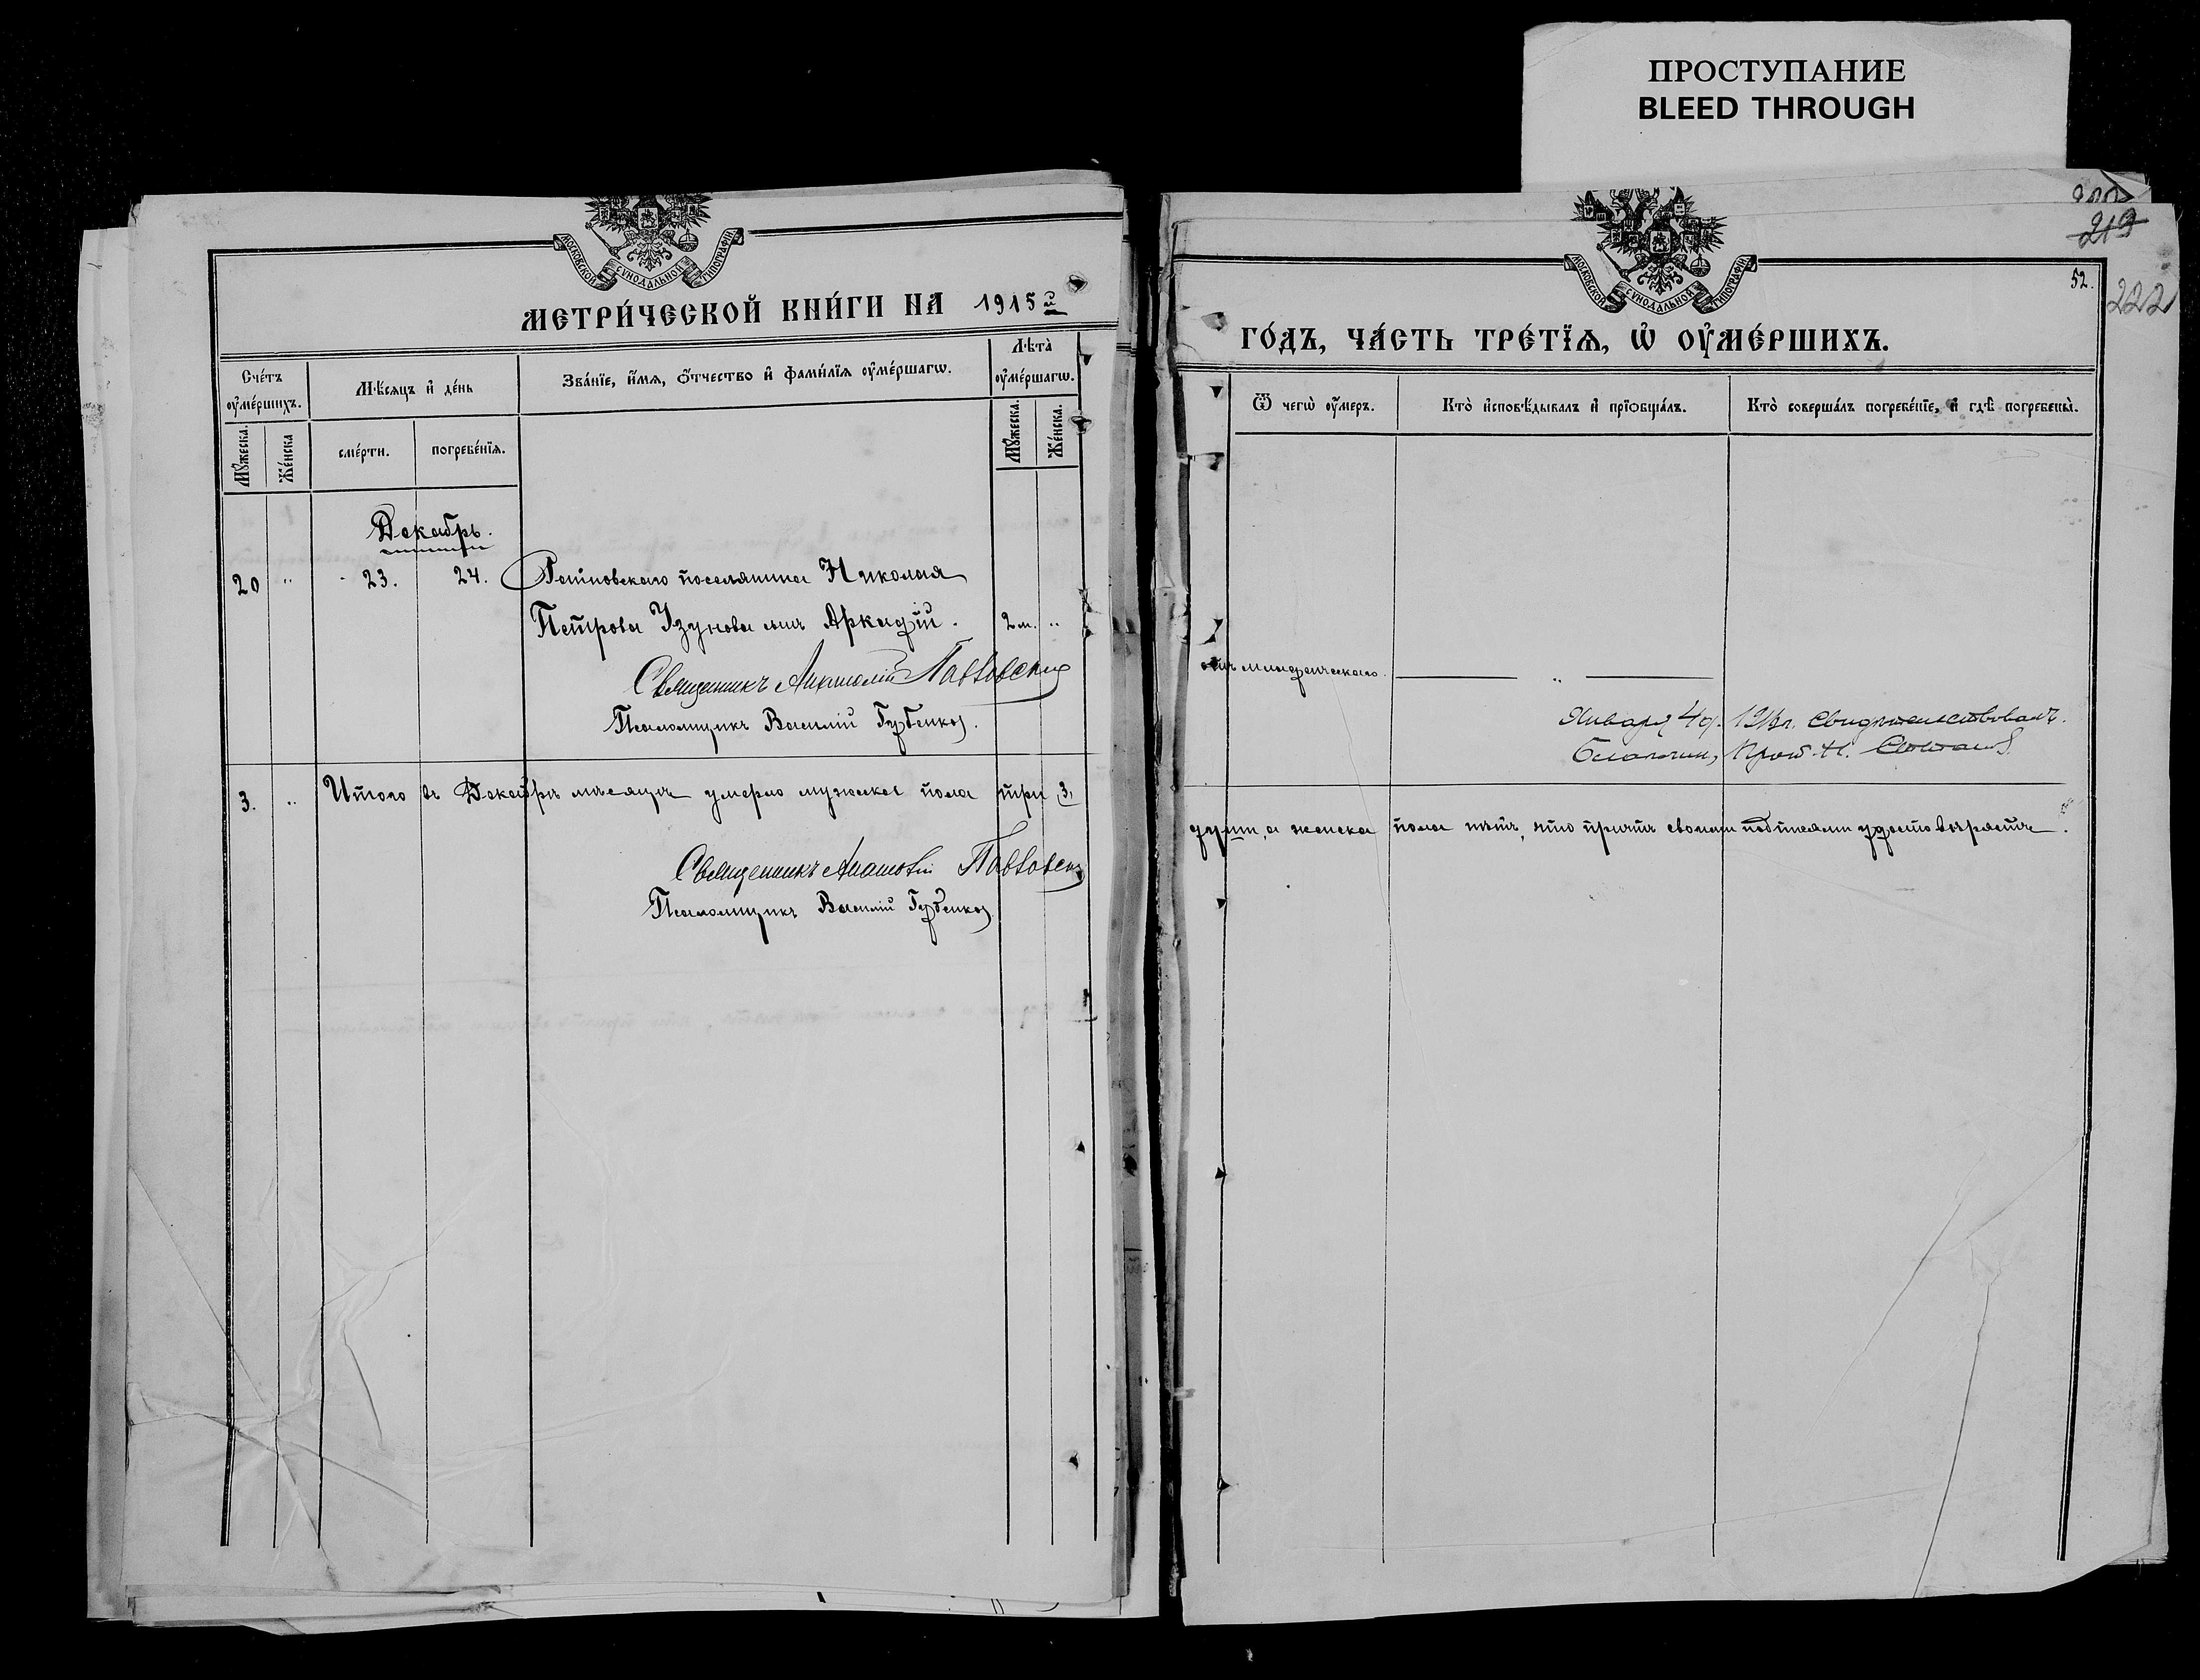 ПРОСТУПАНИЕ
BLEED THROUGH
219
222
52.
МОСКОВСКОЙ СѴНОДАЛЬНОЙ ТИПОГРАФІИ
МОСКОВСКОЙ СѴНОДАЛЬНОЙ ТИПОГРАФІИ
МЕТРИ́ЧЕСКОЙ КНИ́ГИ НА 1915й
ГО́ДЪ, ЧА́СТЬ ТРЕ́ТЇѦ, Ѡ҆ ОУ҆МЕ́РШИХЪ.
Сче́тъ оу҆ме́ршихъ.
Мꙋ́жеска.
Же́нска
Мѣ́сѧцъ и҆ де́нь
сме́рти.
погребе́нїѧ.
Зва́нїе, и҆́мѧ, ѻ҆́тчество и҆ фами́лїѧ оу҆ме́ршагѡ.
Лѣ́та̀ оу҆ме́ршагѡ.
Мꙋ́жеска.
Же́нска.
Ѿ чегѡ̀ оу҆́меръ.
Кто̀ и҆сповѣ́дывалъ и҆ прїѻбща́лъ.
Кто̀ соверша́лъ погребе́нїе, и҆ гдѣ̀ погребены̀.
Декабрь.
20 " 23. 24. поселянина Николая
Петрова Узунова сынъ Аркадій. 2 м. "
Священникъ Анатолій Павловскій
Псаломщикъ Василій Губенко.
отъ младенческаго. "
Января 4 д. 1916 г. Свидетельствовалъ.
Благочин, Прот. Н.
3. " Итого въ Декабрѣ мѣсяцѣ умерло мужеска пола три (3)
души, а женска пола нѣтъ, что причтъ своими подписями удостовѣряетъ.
Священникъ Анатолій Павловскій
Псаломщикъ Василій Губенко.